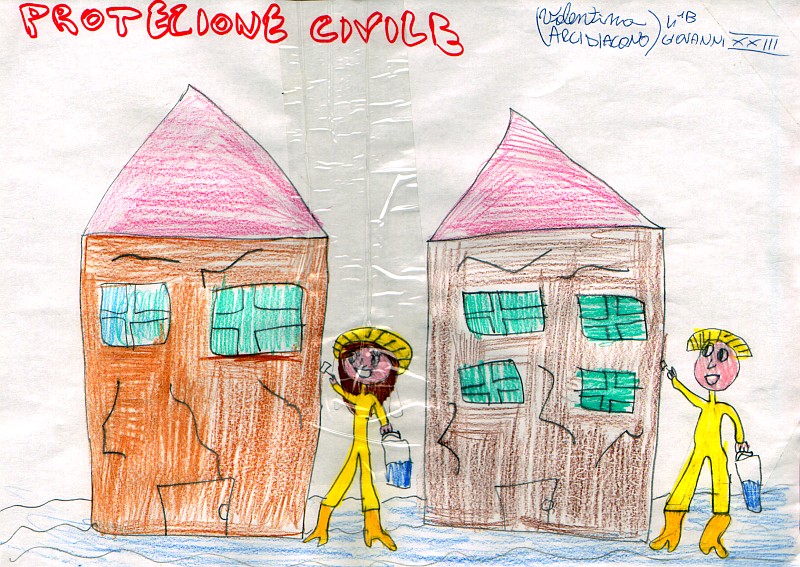 PROTEZIONE CIVILE
(Valentina
ARCIDIACONO) 4ªB
GIOVANNI XXIII